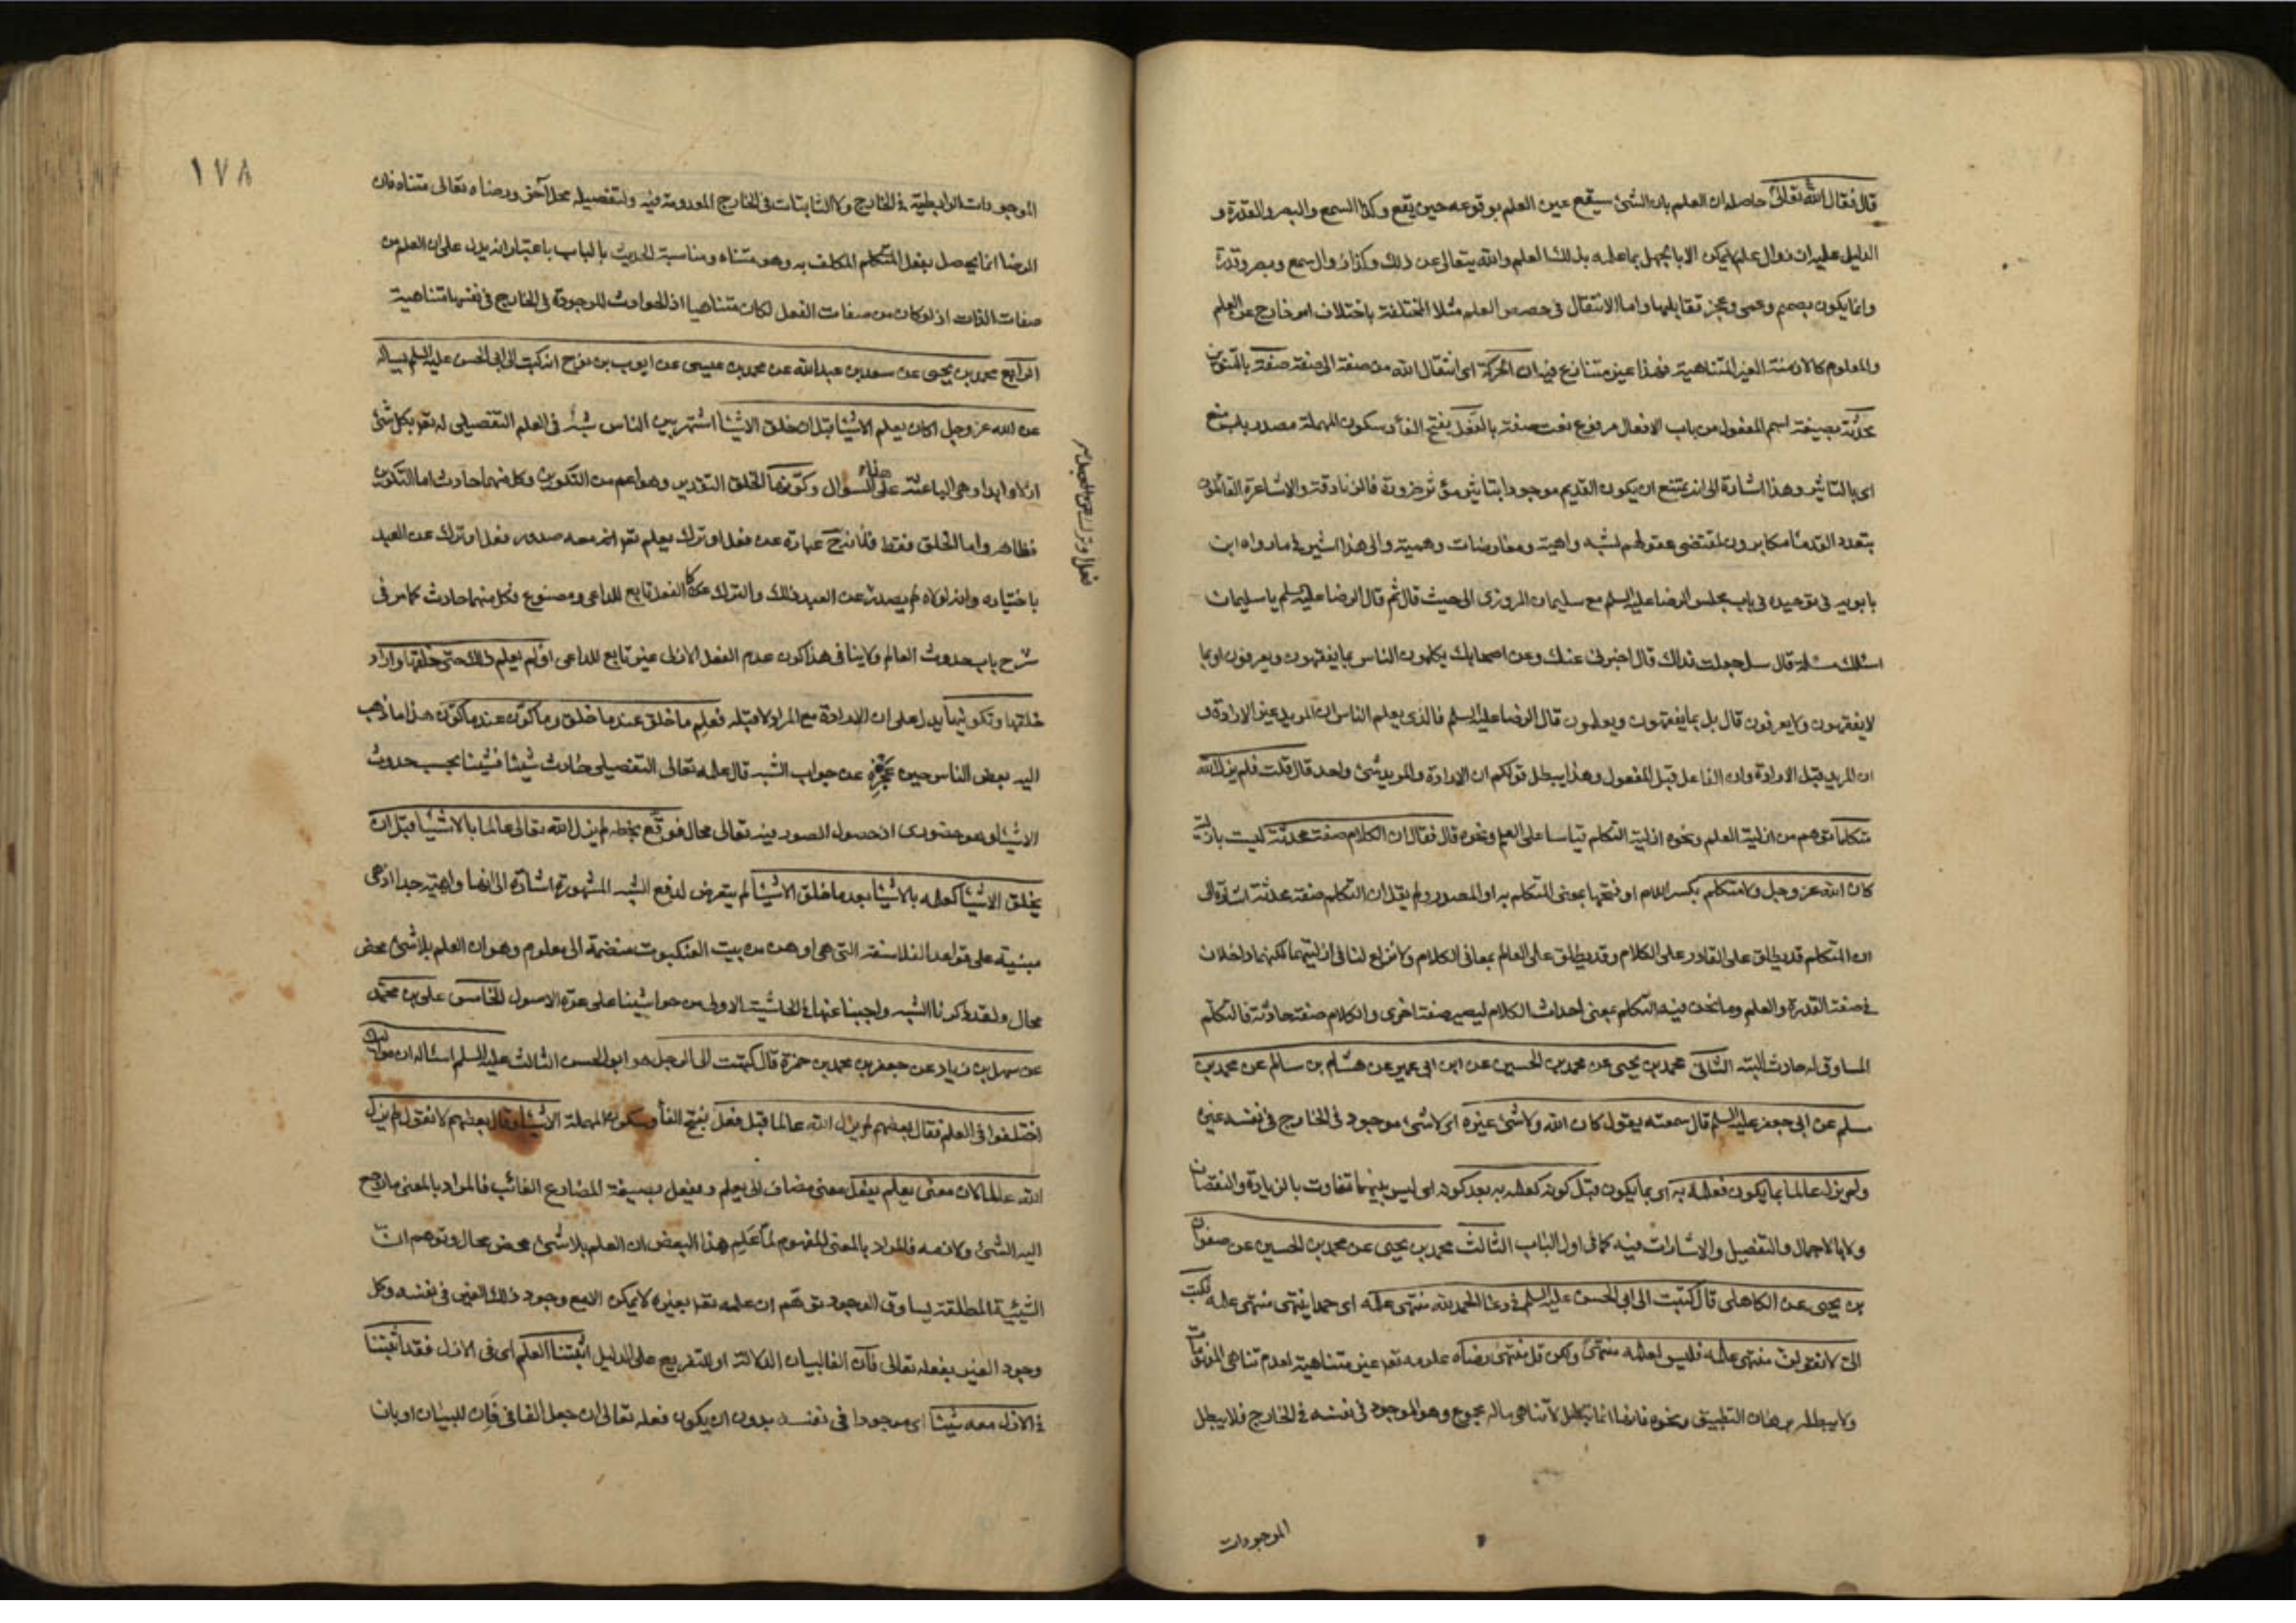 قال فقال الله تعالى حاصله ان العلم بان الشئ سيقع عين العلم بوقوعه حين يقع وكذا السمع والبصر والقدرة و
الدليل عليه ان زوال علم لا يكن الا بالجهل بما علمه بذلك العلم والله يتعالى عن ذلك وكذا زوال سمع وبصر وقدرة
وانما يكون بصمم وعمى وعجز تقابلها واما الانتقال في حصص العلم مثلا المختلفة باختلاف امر خارج عن العلم
والمعلوم كالازمنة الغير المتناهية فهذا غير متنازع فيه ان الحركة اى انتقال الله من صفة الى صفة صفة بالتنوين
محدثة بصيغة اسم المفعول من باب الافعال مرفوع نعت صفة بالفعل بفتح الفاء وسكون المهملة مصدر باب منع
اى بالتاثير وهذا اشارة الى انه يمتنع ان يكون القديم موجودا بتاثير مؤثر ضرورة فالزنادقة والاشاعرة القائلون
بتعدد القدماء مكابرون لمقتضى عقولهم لشبه واهية ومعارضات وهمية والى هذا اشير في ما رواه ابن
بابويه في توحيده في باب مجلس الرضا عليه السلم مع سليمان المروزى الى حيث قال ثم قال الرضا عليه السلم يا سليمان
اسئلك مسئلة قال سل جعلت فداك قال اخبرنى عنك وعن اصحابك يكلمون الناس بما يفقهون ويعرفون او بما
لا يفقهون ولا يعرفون قال بل بما يفقهون ويعلمون قال الرضا عليه السلم فالذى يعلم الناس ان المريد غير الارادة و
ان المريد قبل الارادة وان الفاعل قبل المفعول وهذا يبطل قولكم ان الارادة والمريد شئ واحد قال قلت فلم يزل الله
متكلما توهم من ازلية العلم ونحوه ازلية التكلم قياسا على العلم ونحوه قال فقال ان الكلام صفة محدثة ليست بازلية
كان الله عز وجل ولا متكلم بكسر اللام او فتحها بمعنى المتكلم به او المصدر ولم يقل ان التكلم صفة محدثة اشارة الى
ان المتكلم قد يطلق على القادر على الكلام وقد يطلق على العالم بمعانى الكلام ولا نزاع لنا في ازليتهما لكنهما داخلان
في صفة القدرة والعلم وما نحن فيه التكلم بمعنى احداث الكلام ليصير صفة اخرى والكلام صفة حادثة فالتكلم
المساوق له حادث البتة الثانى محمد بن يحيى عن محمد بن الحسين عن ابن ابى عمير عن هشام بن سالم عن محمد بن
مسلم عن ابى جعفر عليه السلم قال سمعته يقول كان الله ولا شئ غيره اى لا شئ موجود في الخارج في نفسه غيره
ولم يزل عالما بما يكون فعلمه به اى بما يكون قبل كونه كعلمه به بعد كونه اى ليس بينهما تفاوت بالزيادة والنقصان
ولا بالاجمال والتفصيل والاشارات فيه كما في اول الباب الثالث محمد بن يحيى عن محمد بن الحسين عن صفوان
بن يحيى عن الكاهلى قال كتبت الى ابى الحسن عليه السلم في دعاء الحمد لله منتهى علمه اى حمدا ينتهى منتهى علمه فكتب
الىّ لا تقولن منتهى علمه فليس لعلمه منتهى ولكن قل منتهى رضاه علومه تعالى غير متناهية لعدم تناهى المعلومات
ولا يبطله برهان التطبيق ونحوه فانها انما تبطل لا تناهى ماله مجموع وهو الموجود في نفسه في الخارج فلا يبطل
الموجودات
١٧٨
الموجودات الرابطية في الخارج ولا الثابتات في الخارج المعدومة فيه ولتفصيله محل آخر ورضاه تعالى متناه فان
الرضا انما يحصل بفعل المتكلم المكلف به وهو متناه ومناسبة الحديث بالباب باعتبار انه يدل على ان العلم من
صفات الذات اذ لو كان من صفات الفعل لكان متناهيا اذ الحوادث الموجودة في الخارج في نفسها متناهية
الرابع محمد بن يحيى عن سعد بن عبد الله عن محمد بن عيسى عن ايوب بن نوح انه كتب الى ابى الحسن عليه السلم يساله
عن الله عز وجل اكان يعلم الاشياء قبل ان خلق الاشياء اشتهر بين الناس شبه في العلم التفصيلى له تعالى بكل شئ
ازلا وابدا وهى الباعثة على هذا السوال وكوّنها الخلق التقدير وهو اعم من التكوين وكل منهما حادث اما التكوين
فظاهر واما الخلق فقط فلانه ح عبارة عن فعل او ترك يعلم تعالى انه معه صدور فعل او ترك عن العبد
باختياره وانه لولاه لم يصدر عن العبد ذلك والترك كالفعل تابع للداعى ومصنوع فكل منهما حادث كما مر فى
شرح باب حدوث العالم ولا ينافى هذا كون عدم الفعل الازلى غير تابع للداعى او لم يعلم ذلك حتى خلقها واراد
خلقها وتكوينها يدل على ان الارادة مع المراد لا قبله فعلم ما خلق عند ما خلق وما كوّن عند ما كوّن هذا ما ذهب
اليه بعض الناس حين عجزه عن جواب الشبه قال علمه تعالى التفصيلى حادث شيئا فشيئا بحسب حدوث
الاشياء وهو حضورى اذ حصول الصور فيه تعالى محال فوقّع بخطه لم يزل الله تعالى عالما بالاشياء قبل ان
يخلق الاشياء كعلمه بالاشياء بعد ما خلق الاشياء لم يتعرض لدفع الشبه المشهورة اشارة الى انها واهية جدا اذ هى
مبنية على قواعد الفلاسفة التى هى اوهن من بيت العنكبوت منضمة الى معلوم وهو ان العلم بلا شئ محض
محال ولقد ذكرنا الشبه واجبنا عنها في الحاشية الاولى من حواشينا على عدة الاصول الخامس على بن محمد
عن سهل بن زياد عن جعفر بن محمد بن حمزة قال كتبت الى الرجل هو ابو الحسن الثالث عليه السلم اساله ان مواليك
اختلفوا في العلم فقال بعضهم لم يزل الله عالما قبل فعل بفتح الفاء وسكون المهملة الاشياء وقال بعضهم لا نقول لم يزل
الله عالما لان معنى يعلم يفعل معنى مضاف الى يعلم ويفعل بصيغة المضارع الغائب فالمراد بالمعنى ما يرجع
اليه الشئ ولازمه فالمراد بالمعنى المفهوم لما علم هذا البعض ان العلم بلا شئ محض محال وتوهم ان
الشيئية المطلقة يساوق الوجود توهم ان علمه تعالى بغيره لا يمكن الا مع وجود ذلك الغير في نفسه وكل
وجود الغير بفعله تعالى فان الفا لبيان الدلالة او للتفريع على الدليل اثبتنا العلم اى في الازل فقد اثبتنا
في الازل معه شيئا اى موجودا في نفسه بدون ان يكون فعله تعالى ان جعل الفا في فان للبيان او بان